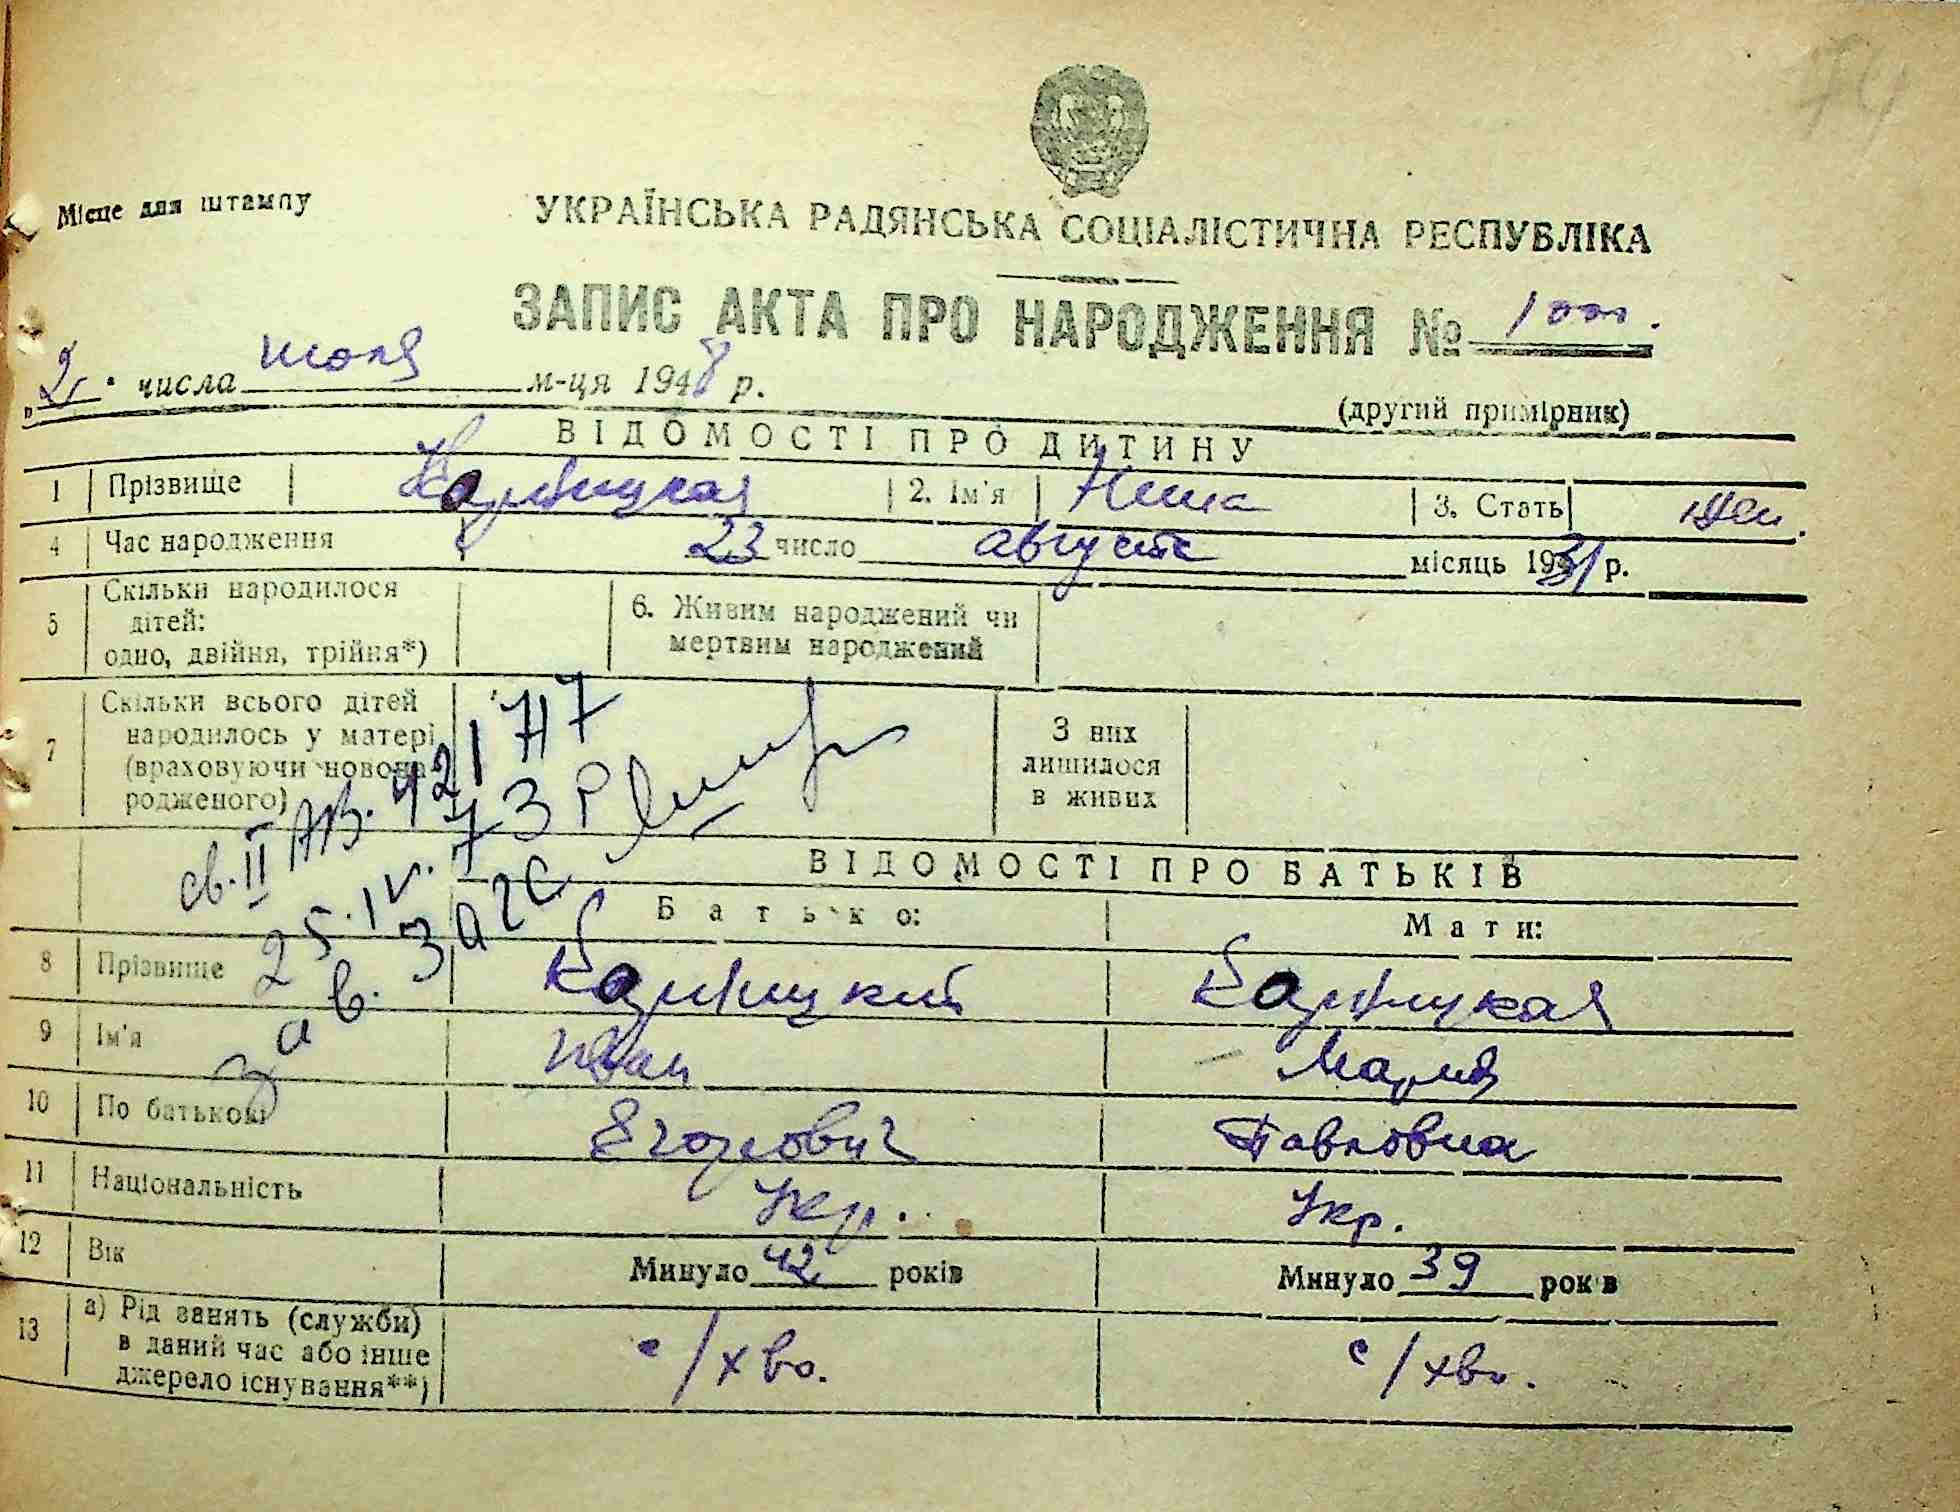 Місце для штампу
УКРАЇНСЬКА РАДЯНСЬКА СОЦІАЛІСТИЧНА РЕСПУБЛІКА
ЗАПИС АКТА ПРО НАРОДЖЕННЯ №
числа июля м-ця 1948 р.
(другий примірник)
ВІДОМОСТІ ПРО ДИТИНУ
1 Прізвище 2. Ім'я Нина 3. Стать жен.
4 Час народження 23 число августа місяць 1931 р.
5 Скільки народилося дітей: одно, двійня, трійня*) 6. Живим народжений чи мертвим народжений
7 Скільки всього дітей народилось у матері (враховуючи новонародженого) З них лишилося в живих
св. II АВ. 421717
25.IV.73 р
зав. загс
ВІДОМОСТІ ПРО БАТЬКІВ
Батько: Мати:
8 Прізвище
9 Ім'я Иван Мария
10 По батькові Егорович Павловна
11 Національність Укр. Укр.
12 Вік Минуло 42 років Минуло 39 років
13 а) Рід занять (служби) в даний час або інше джерело існування**) с/хво. с/хво.